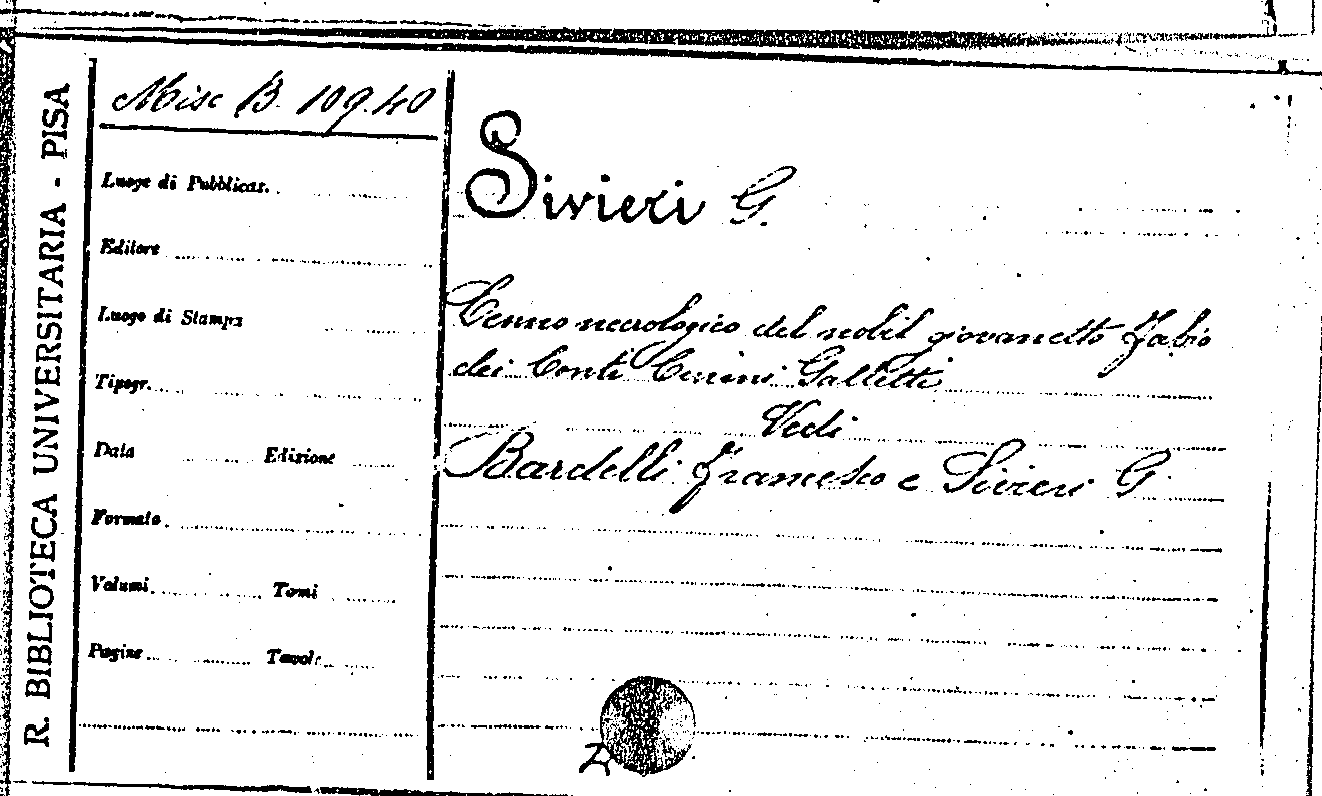 R. BIBLIOTECA UNIVERSITARIA - PISA
Misc B. 109.40
Luogo di Pubblicaz.
Editore
Luogo di Stampa
Tipogr.
Data Edizione
Formato
Volumi Tomi
Pagine Tavole
Sivieri G.
Cenno necrologico del nobil giovanetto Fabio
dei Conti Cerini Galletti
Vedi
Bardelli Francesco e Sivieri G